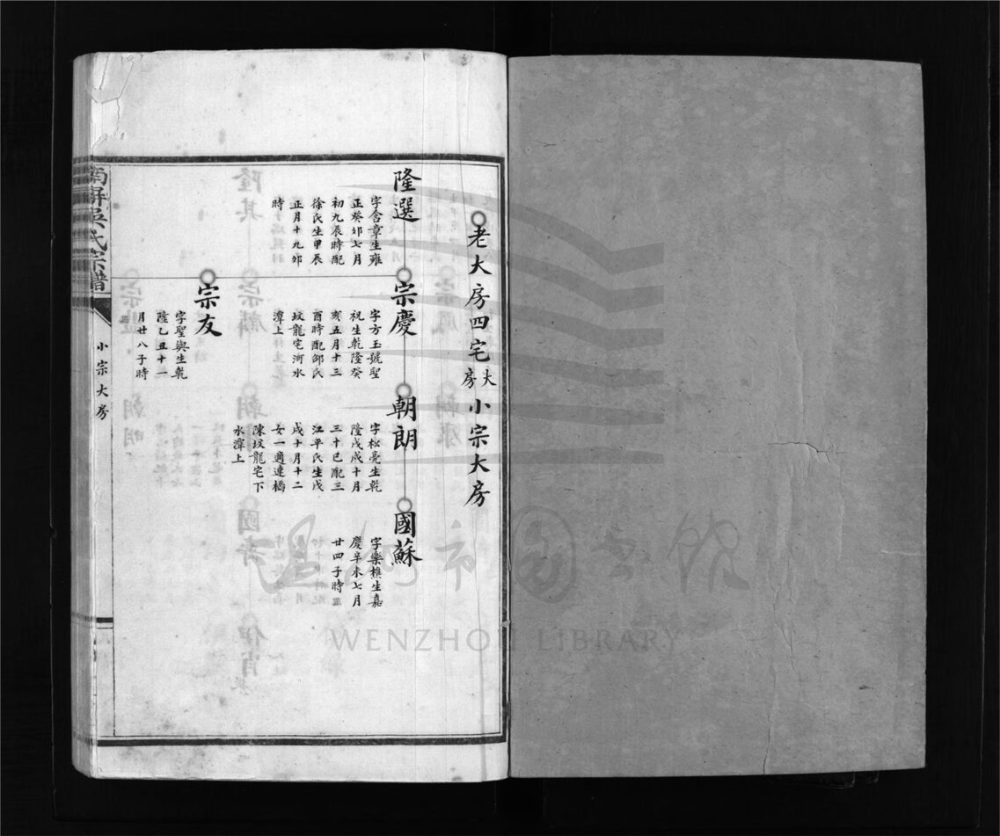 老大房四宅大房小宗大房
隆選
字含章生雍
正癸卯七月
初九辰時配
徐氏生甲辰
正月十九卯
時
宗慶
字方玉號聖
祝生乾隆癸
亥五月十三
酉時配邱氏
坟龍宅河水
潭上
朝朗
字松亮生乾
隆戊戌十月
三十巳配三
江平氏生戊
戌十月十二
女一適連橋
陳坟龍宅下
水潭上
國蘇
字樂樵生嘉
慶辛未七月
廿四子時
宗友
字聖與生乾
隆乙丑十一
月廿八子時
南屏吳氏宗譜
小宗大房
溫州市圖書館
WENZHOU LIBRARY